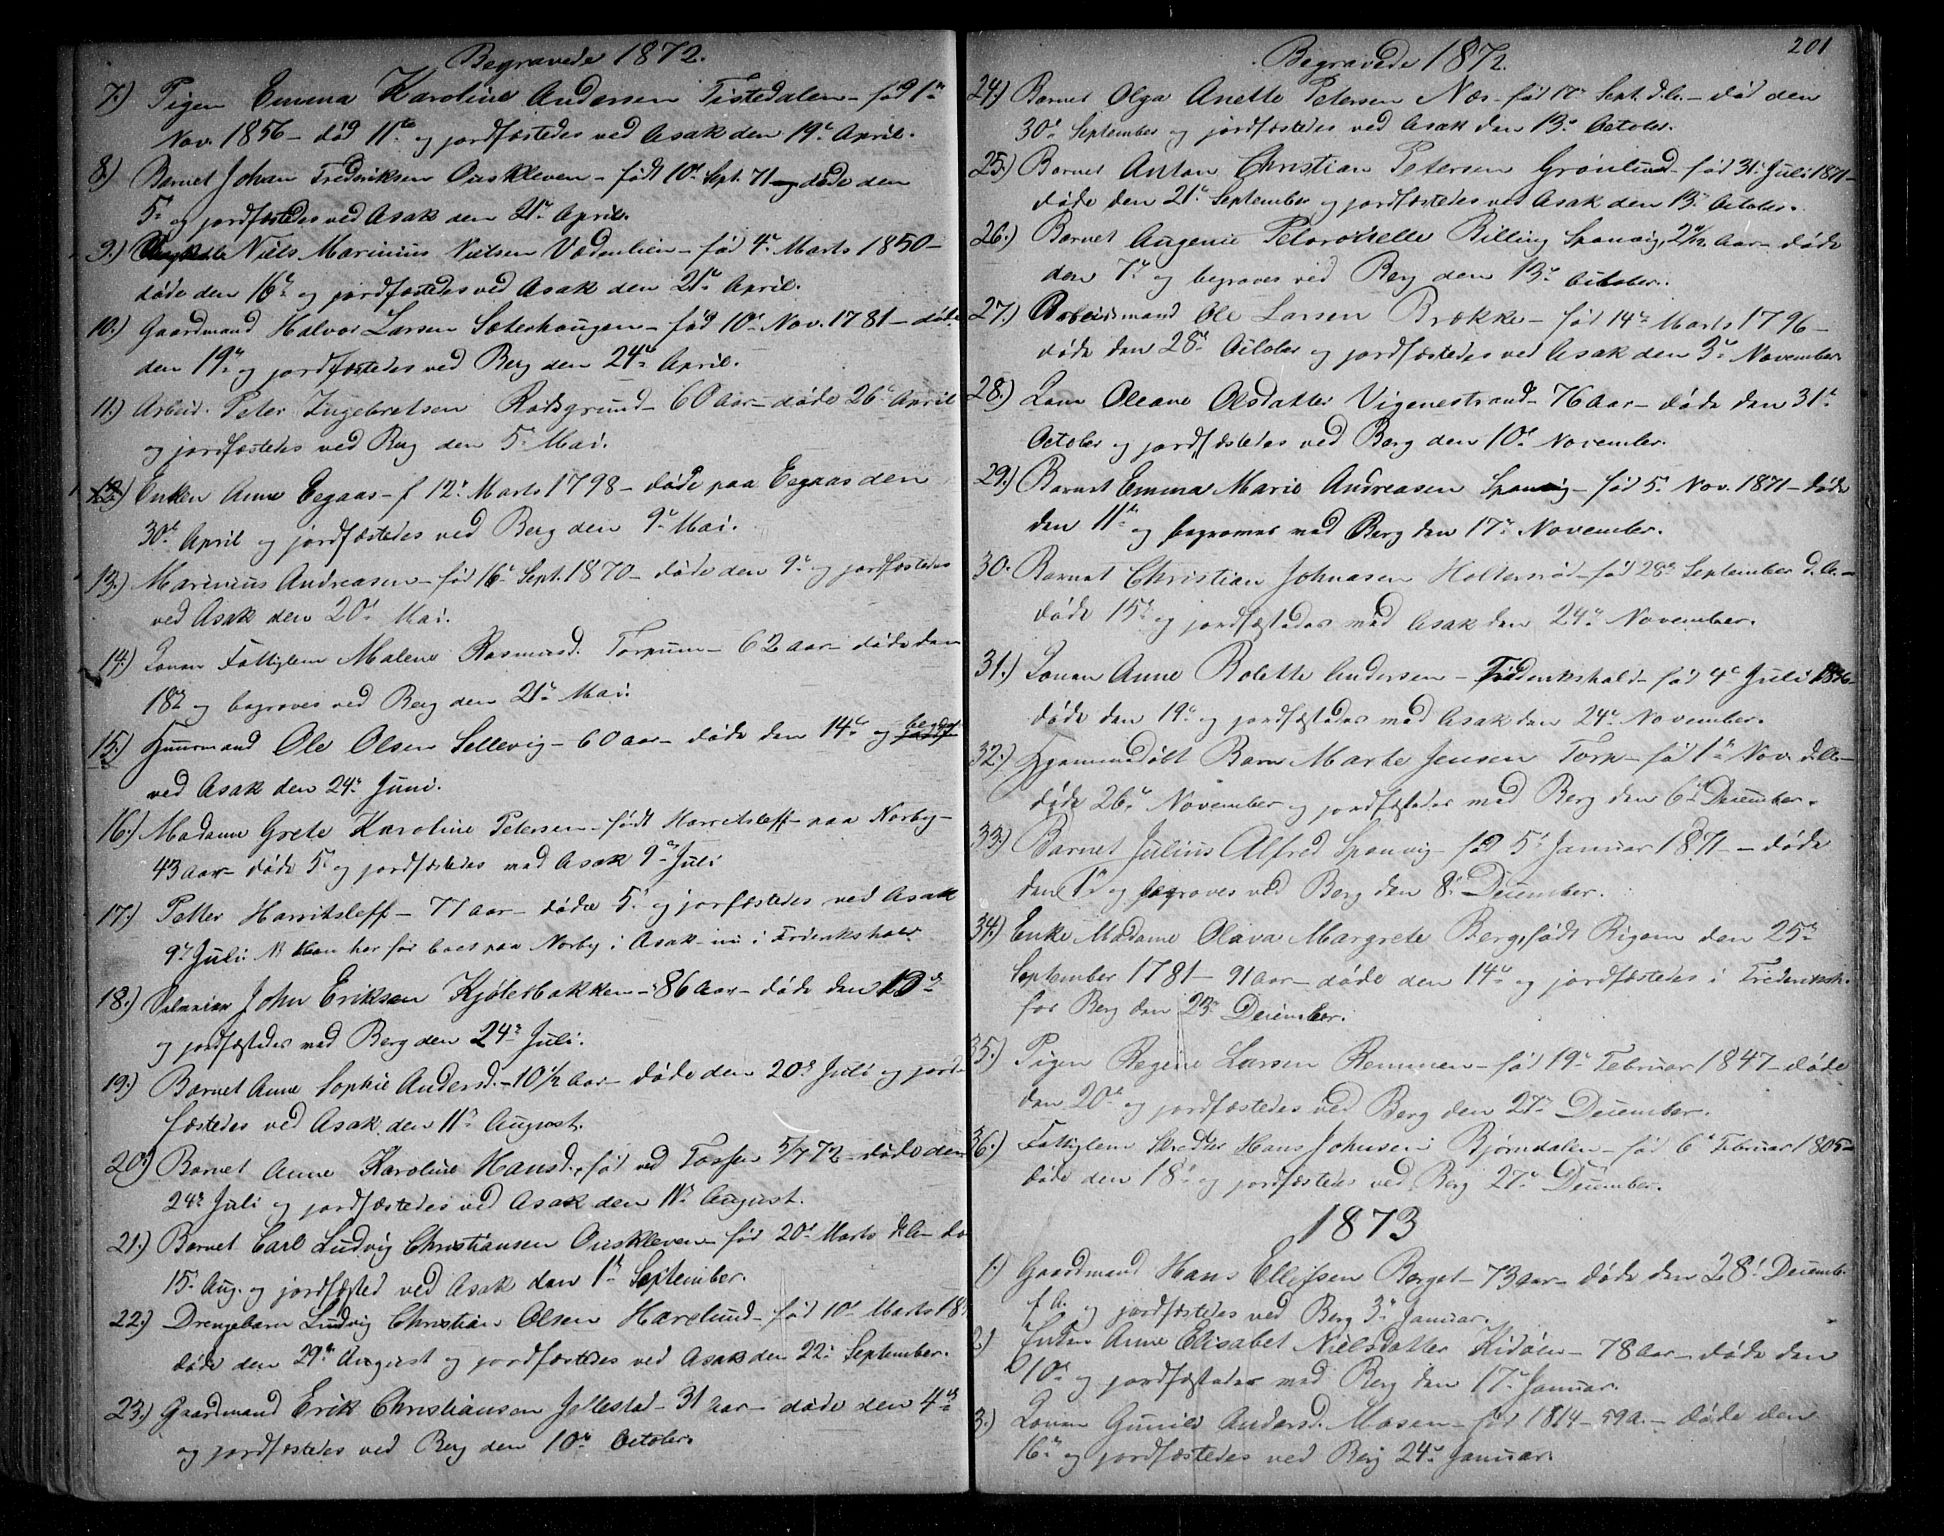 Begravede 1872.
7.) Pigen Emma Karoline Andersen Tistedalen - fød 1ste
Nov. 1856 - død 11te og jordfæstedes ved Asak den 19de April.
8.) Barnet Johan Frederiksen Ouskleven - født 10de Sept. 71 - døde den
5te og jordfæstedes ved Asak den 21de April.
9.) Niels Marinius Nielsen Vedenlien - fød 4de Marts 1850 -
døde den 16de og jordfæstedes ved Asak den 21de April.
10.) Gaardmand Halvor Larsen Sæterhougen - fød 10de Nov. 1781 - døde
den 19de og jordfæstedes ved Berg den 24de April.
11.) Arbeid. Peter Ingebretsen Rødsgrund - 60 Aar - døde 26de April
og jordfæstedes ved Berg den 5te Mai.
12.) Enken Anne Eegaas - f 12te Marts 1798 - døde paa Eegaas den
30de April og jordfæstedes ved Berg den 9de Mai.
13.) Marinius Andreasen - fød 16de Sept. 1870 - døde den 9de og jordfæstedes
ved Asak den 20de Mai.
14.) Konen Fattiglem Malene Rasmusd. Torpum - 62 Aar - døde den
18de og begraves ved Berg den 21de Mai.
15.) Huusmand Ole Olsen Sellevig - 60 Aar - døde den 14de og
ved Asak den 24de Juni.
16.) Madame Grete Karoline Petersen - født Harritsleff - paa Norby -
43 Aar - døde 5te og jordfæstedes ved Asak 9de Juli
17.) Petter Harritsleff - 77 Aar - døde 5te og jorfæstedes ved Asak
9de Juli. NB Han har før boet paa Norby i Asak - nu i Frederikshald
18.) John Eriksen Kjølerbakken - 86 Aar - døde den
og jordfæstedes ved Berg den 24de Juli.
19.) Barnet Anne Sophie Andersd. - 10 1/2 Aar - døde den 20de Juli og jord-
fæstedes ved Asak den 11te August.
20.) Barnet Anne Karoline Hansd., fød ved 5/7 72 - døde den
24de Juli og jordfæstedes ved Asak den 11te August.
21.) Barnet Carl Ludvig Christiansen Ouskleven - fød 20de Marts d.A. - dø
15de Aug. og jordfæsted ved Asak den 1ste September.
22.) Drengebarn Ludvig Christian Olsen Harelund - fød 10de Marts 18
døde den 29de August og jordfæstedes ved Asak den 22de September.
23.) Gaardmand Erik Christiansen Jellestad - 31 Aar - døde den 4de
og jordfæstedes ved Berg den 10de October.
201
Begravede 1872.
24.) Barnet Olga Anette Petersen Næs - fød Sept. d.A. - død den
30de September og jordfæstedes ved Asak den 13de October.
25.) Barnet Anton Christian Petersen Grønlund - fød 31te Juli 1871 -
døde den 21de September og jordfæstedes ved Asak den 13de October.
26.) Barnet Augenie Petoronelle Billing Sponvig, Aar - døde
den 7de og begraves ved Berg den 13de October.
27.) Arbeidsmand Ole Larsen Brække - fød 14de Marts 1796 -
døde den 28de October og jordfæstedes ved Asak den 3de November
28.) Kone Oleane Olsdatter Vigenestrand - 76 Aar - døde den 31te
October og jordfæstedes ved Berg den 10de November.
29.) Barnet Emma Marie Andreasen Sponvig - fød 5te Nov. 1871 - døde
den 11te og begraves ved Berg den 17de November.
30. Barnet Christian Johnasen Holtersrød - fød 28de September d.A. -
døde 15de og jordfæstedes ved Asak den 24de November.
31.) Konen Anne Bolette Andersen - Frederikshald - fød 4de Juli
døde den 19de og jordfæstedes ved Asak den 24de November.
32.) Hjemmedøbt Barn Marte Jensen Torp - fød 1ste Nov. d.A. -
døde 26de November og jordfæstedes ved Berg den 6te December.
33.) Barnet Julius Alfred Sponvig - fød 5te Januar 1871 - døde
den 1ste og begraves ved Berg den 8de December.
34.) Enke Madame Olava Margrete Berg, født Bigom den 25de
September 1781 - 91 Aar - døde den 14de og jordfæstedes i Frederiksh.
for Berg den 23de December.
35.) Pigen Regine Larsen Remmen - fød 19de Februar 1847 - døde
den 20de og jordfæstedes ved Berg den 27de December.
36.) Fattiglem Skredder Hans Johnsen Bjørndalen - fød 6te Februar 1805 -
døde den 18de og jordfæstedes ved Berg 27de December.
1873
1.) Gaardmand Hans Ellefssen Berget - 73 Aar - døde den 28de Decemb.
f.A. og jordfæstedes ved Berg 3de Januar.
2.) Enken Anne Elisabet Nielsdatter Kidøen - 78 Aar - døde den
10de og jordfæstedes ved Berg den 17de Januar.
3.) Konen Gunild Andersd. Mosen - fød 1814 - 59 A. - døde den
16de og jordfæstedes ved Berg 24de Januar.